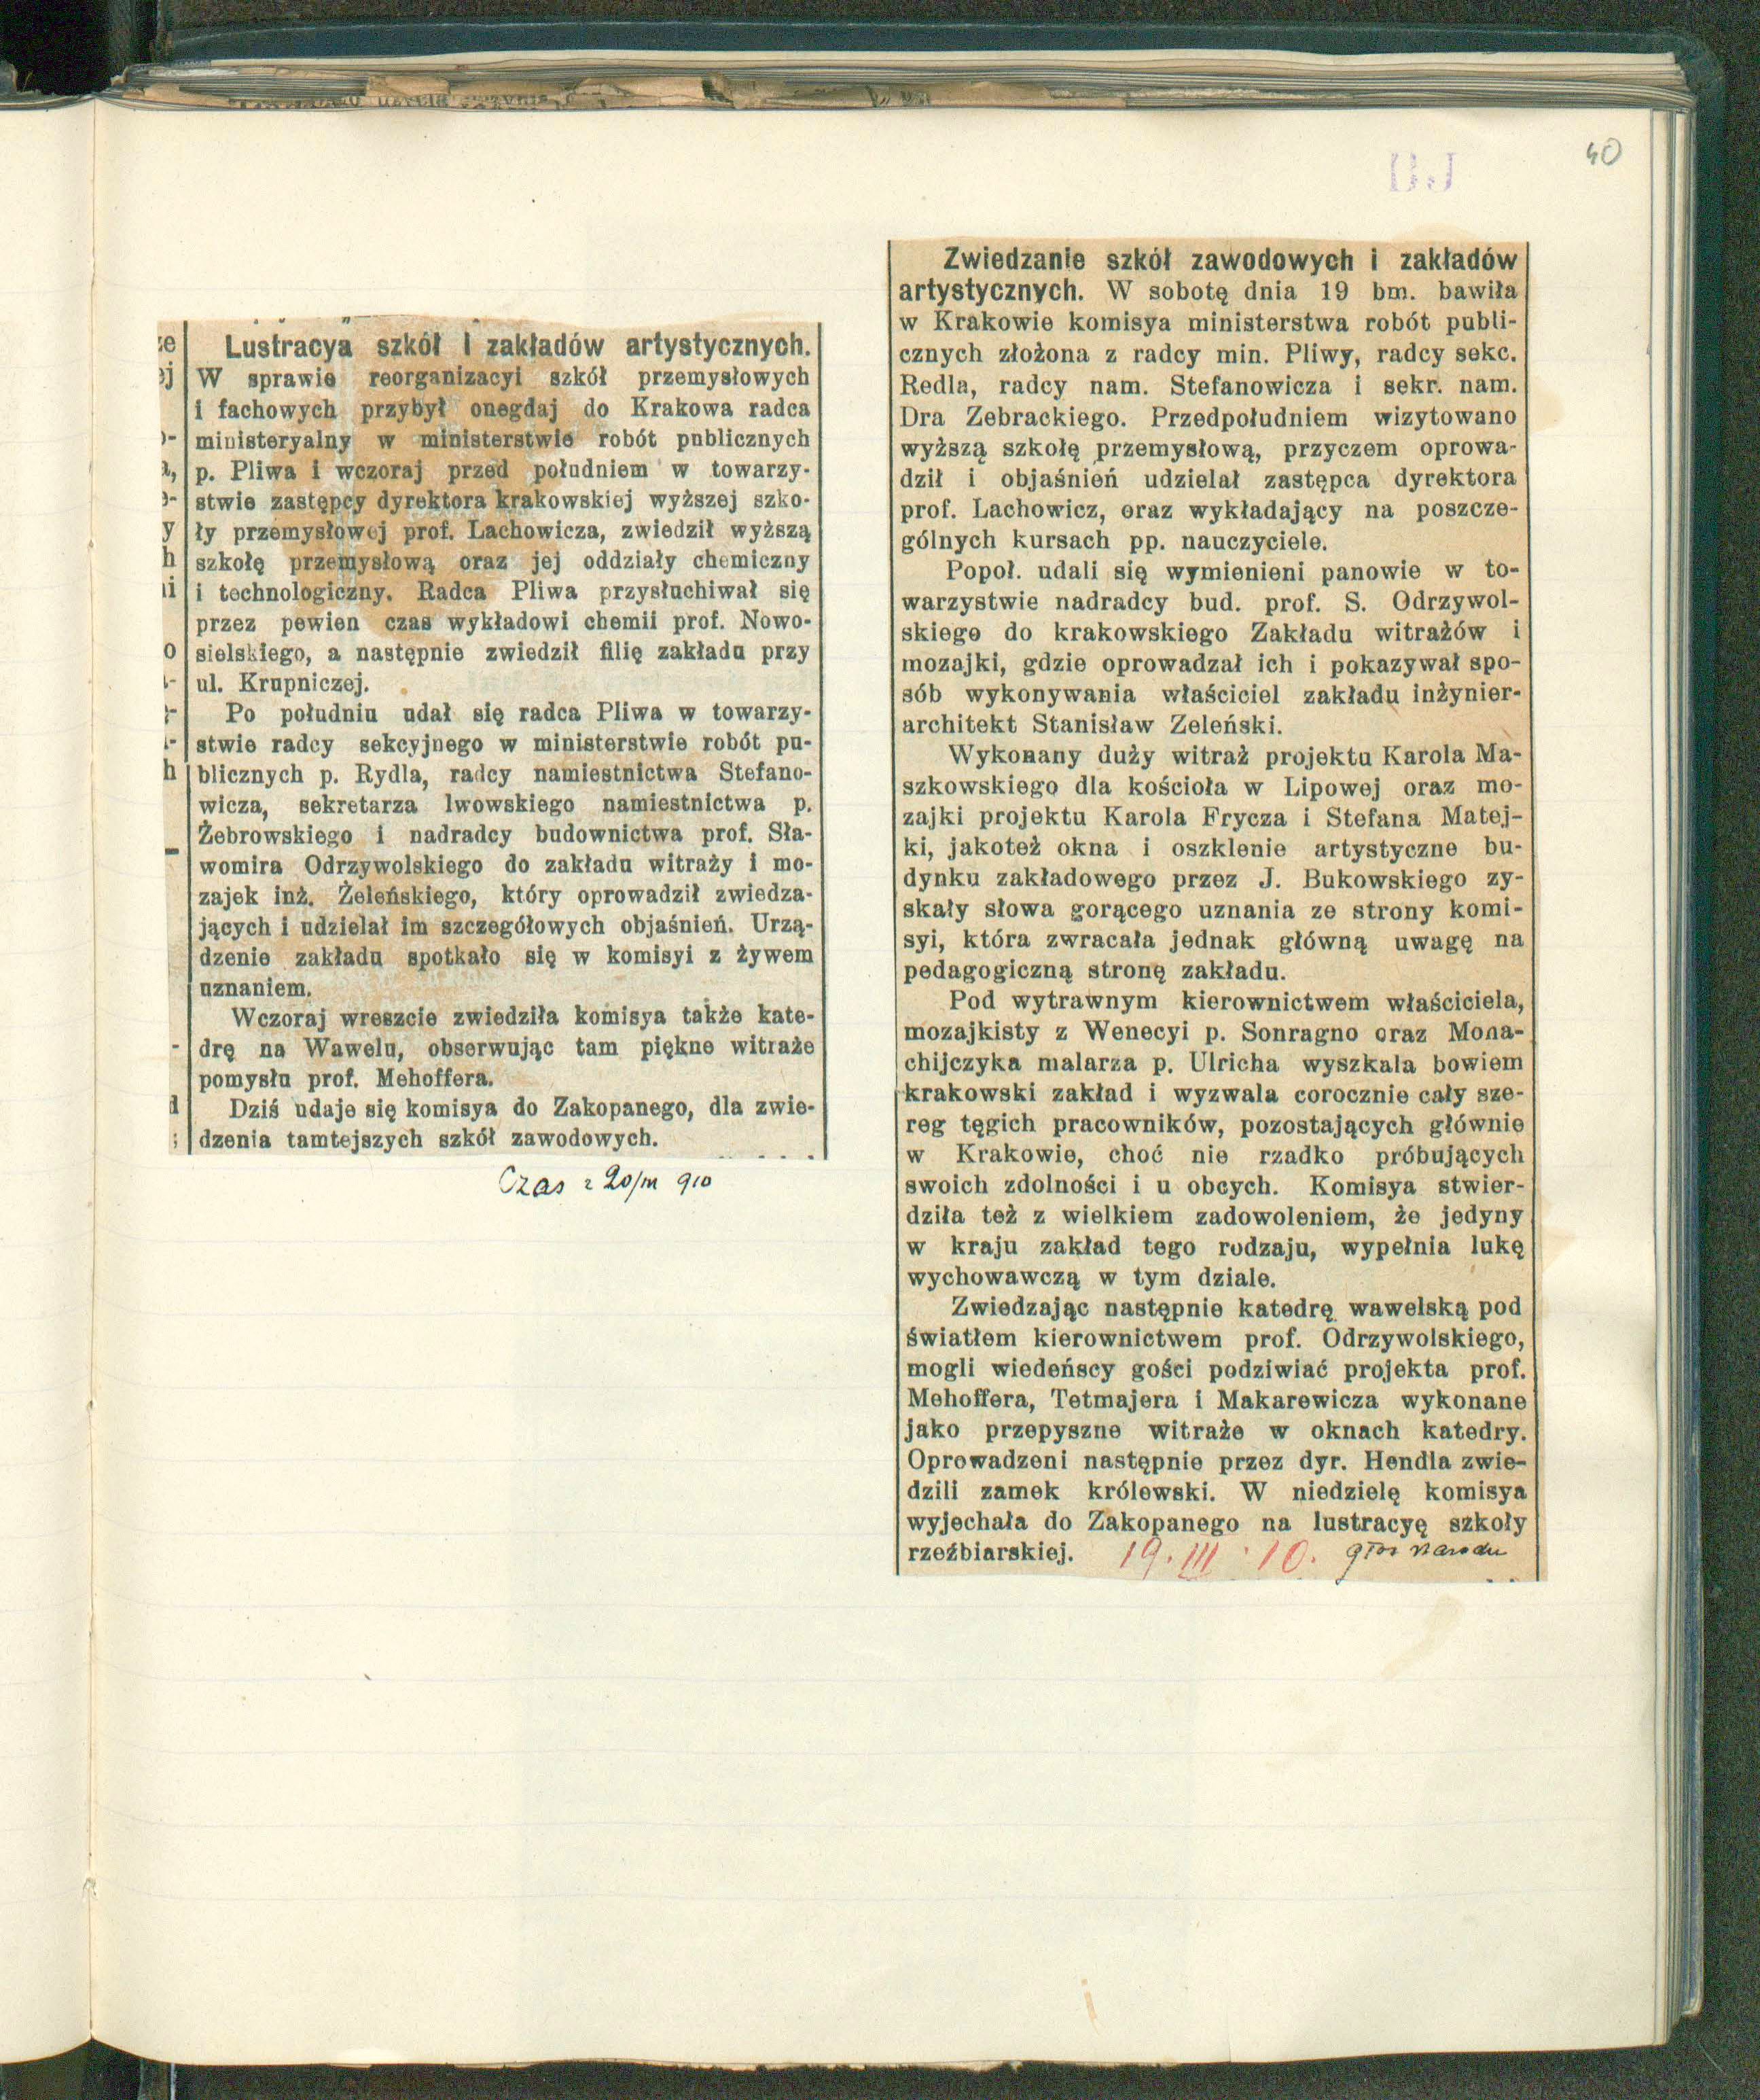 40
Lustracya szkół i zakładów artystycznych.
W sprawie reorganizacyi szkół przemysłowych
i fachowych przybył onegdaj do Krakowa radca
ministeryalny w ministerstwie robót publicznych
p. Pliwa i wczoraj przed południem w towarzy-
stwie zastępcy dyrektora krakowskiej wyższej szko-
ły przemysłowej prof. Lachowicza, zwiedził wyższą
szkołę przemysłową oraz jej oddziały chemiczny
i technologiczny. Radca Pliwa przysłuchiwał się
przez pewien czas wykładowi chemii prof. Nowo-
sielskiego, a następnie zwiedził filię zakładu przy
ul. Krupniczej.
Po południu udał się radca Pliwa w towarzy-
stwie radcy sekcyjnego w ministerstwie robót pu-
blicznych p. Rydla, radcy namiestnictwa Stefano-
wicza, sekretarza lwowskiego namiestnictwa p.
Żebrowskiego i nadradcy budownictwa prof. Sła-
womira Odrzywolskiego do zakładu witraży i mo-
zajek inż. Żeleńskiego, który oprowadził zwiedza-
jących i udzielał im szczegółowych objaśnień. Urzą-
dzenie zakładu spotkało się w komisyi z żywem
uznaniem.
Wczoraj wreszcie zwiedziła komisya także kate-
drę na Wawelu, obserwując tam piękne witraże
pomysłu prof. Mehoffera.
Dziś udaje się komisya do Zakopanego, dla zwie-
dzenia tamtejszych szkół zawodowych.
Czas z 20/III 910
Zwiedzanie szkół zawodowych i zakładów
artystycznych. W sobotę dnia 19 bm. bawiła
w Krakowie komisya ministerstwa robót publi-
cznych złożona z radcy min. Pliwy, radcy sekc.
Redla, radcy nam. Stefanowicza i sekr. nam.
Dra Zebrackiego. Przedpołudniem wizytowano
wyższą szkołę przemysłową, przyczem oprowa-
dził i objaśnień udzielał zastępca dyrektora
prof. Lachowicz, oraz wykładający na poszcze-
gólnych kursach pp. nauczyciele.
Popoł. udali się wymienieni panowie w to-
warzystwie nadradcy bud. prof. S. Odrzywol-
skiego do krakowskiego Zakładu witrażów i
mozajki, gdzie oprowadzał ich i pokazywał spo-
sób wykonywania właściciel zakładu inżynier-
architekt Stanisław Zeleński.
Wykonany duży witraż projektu Karola Ma-
szkowskiego dla kościoła w Lipowej oraz mo-
zajki projektu Karola Frycza i Stefana Matej-
ki, jakoteż okna i oszklenie artystyczne bu-
dynku zakładowego przez J. Bukowskiego zy-
skały słowa gorącego uznania ze strony komi-
syi, która zwracała jednak główną uwagę na
pedagogiczną stronę zakładu.
Pod wytrawnym kierownictwem właściciela,
mozajkisty z Wenecyi p. Sonragno oraz Mona-
chijczyka malarza p. Ulricha wyszkala bowiem
krakowski zakład i wyzwala corocznie cały sze-
reg tęgich pracowników, pozostających głównie
w Krakowie, choć nie rzadko próbujących
swoich zdolności i u obcych. Komisya stwier-
dziła też z wielkiem zadowoleniem, że jedyny
w kraju zakład tego rodzaju, wypełnia lukę
wychowawczą w tym dziale.
Zwiedzając następnie katedrę wawelską pod
światłem kierownictwem prof. Odrzywolskiego,
mogli wiedeńscy gości podziwiać projekta prof.
Mehoffera, Tetmajera i Makarewicza wykonane
jako przepyszne witraże w oknach katedry.
Oprowadzeni następnie przez dyr. Hendla zwie-
dzili zamek królewski. W niedzielę komisya
wyjechała do Zakopanego na lustracyę szkoły
rzeźbiarskiej.
19. III. 10. głos narodu